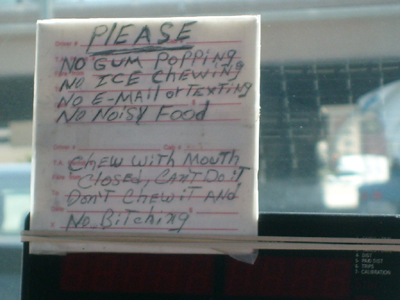 PLEASE
NO GUM POPPING
NO ICE CHEWING
NO E-MAIL or TEXTING
NO NOISY FOOD
CHEW WITH MOUTH
CLOSED, CAN'T DO IT
DON'T CHEW IT AND
NO BITCHING
DIST
PAID DIST
TRIPS
CALIBRATION